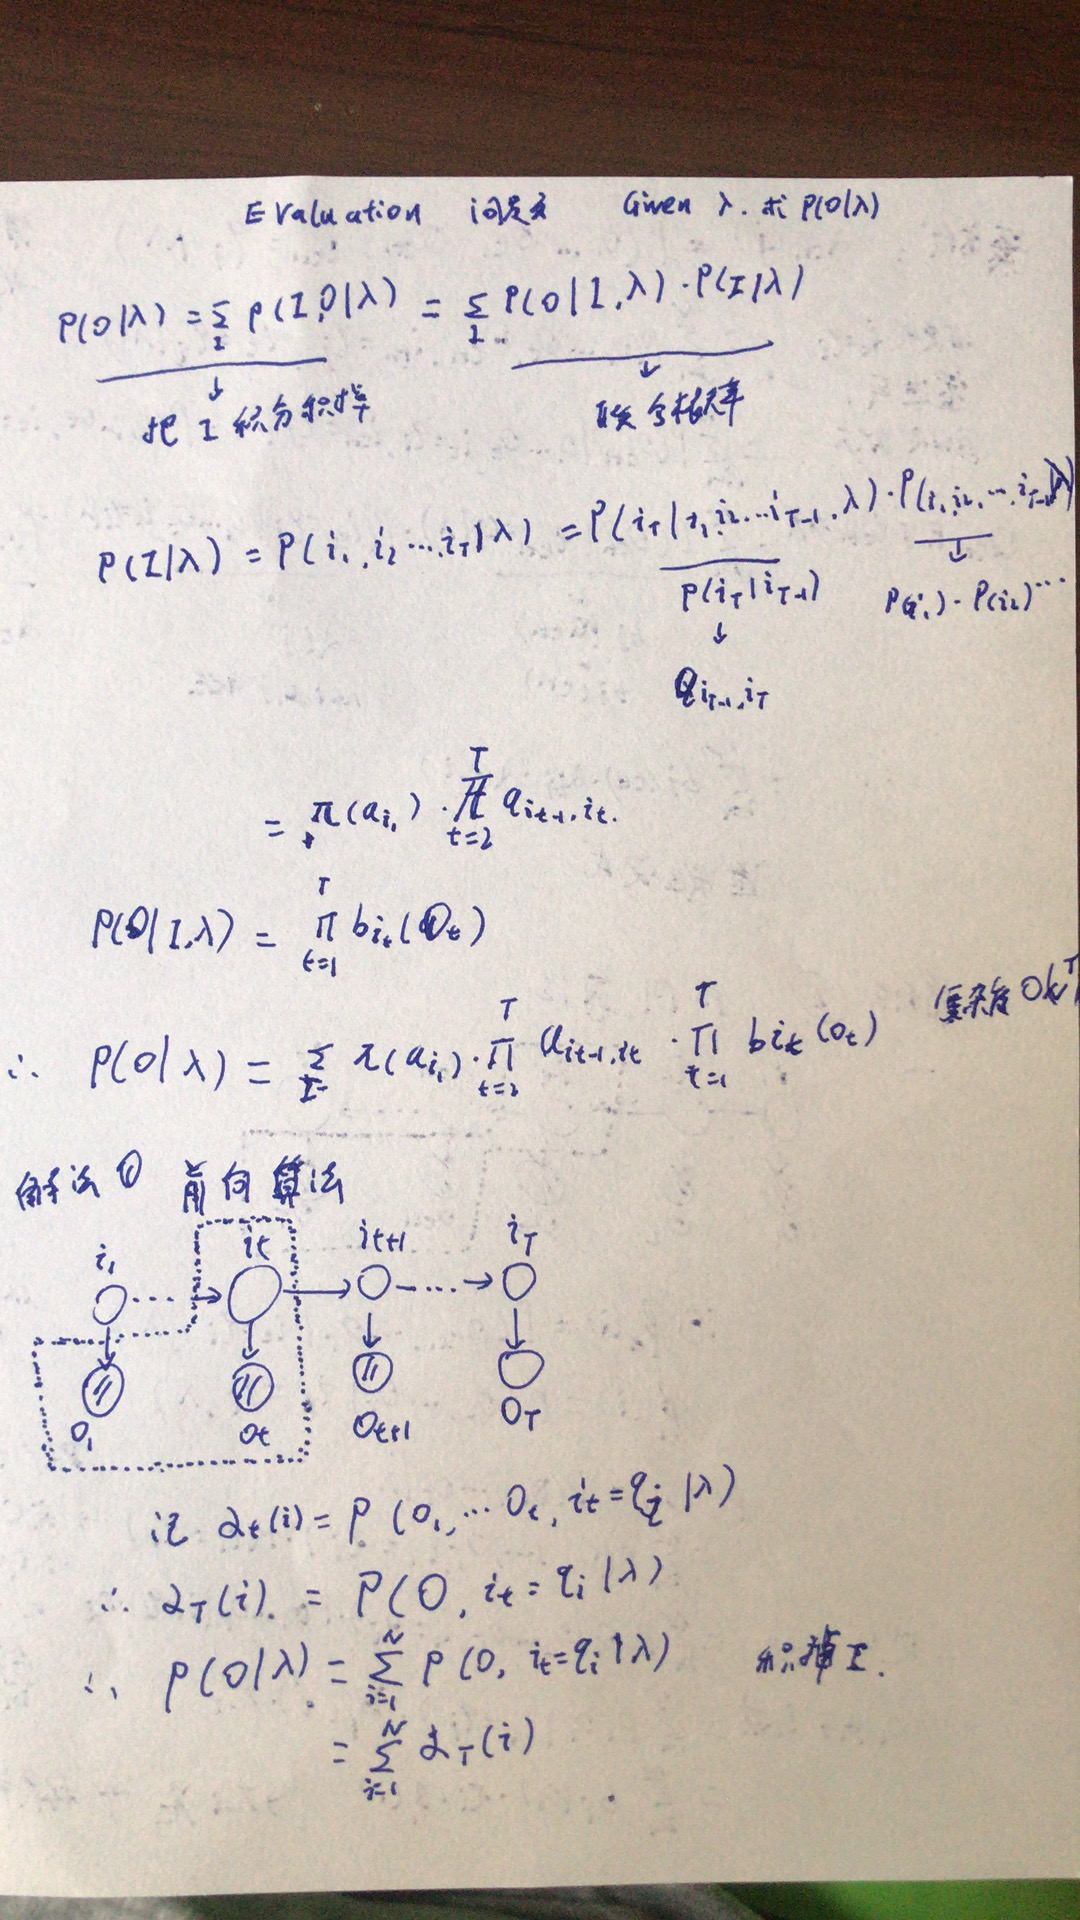 Evaluation 问题 Given λ. 求 P(O|λ)
P(O|λ) = Σ_I P(I,O|λ) = Σ_I P(O|I,λ)·P(I|λ)
↓ ↓
把 I 积分积掉 联合概率
P(I|λ) = P(i₁,i₂…,i_T|λ) = P(i_T|i₁,i₂…i_{T-1},λ)·P(i₁,i₂,…i_{T-1}|λ)
↓
P(i_T|i_{T-1}) P(i₁)·P(i₂)…
↓
a_{i_{T-1},i_T}
= π(a_{i₁})·∏_{t=2}^T a_{i_{t-1},i_t}.
P(O|I,λ) = ∏_{t=1}^T b_{i_t}(O_t)
复杂度 O(N^T)
∴ P(O|λ) = Σ_I π(a_{i₁})·∏_{t=2}^T a_{i_{t-1},i_t}·∏_{t=1}^T b_{i_t}(O_t)
解法① 前向算法
i₁ i_t i_{t+1} i_T
O₁ O_t O_{t+1} O_T
记 α_t(i) = P(O₁,…O_t, i_t=q_i|λ)
∴ α_T(i) = P(O, i_t=q_i|λ)
∴ P(O|λ) = Σ_{i=1}^N P(O, i_t=q_i|λ) 积掉 I.
= Σ_{i=1}^N α_T(i)